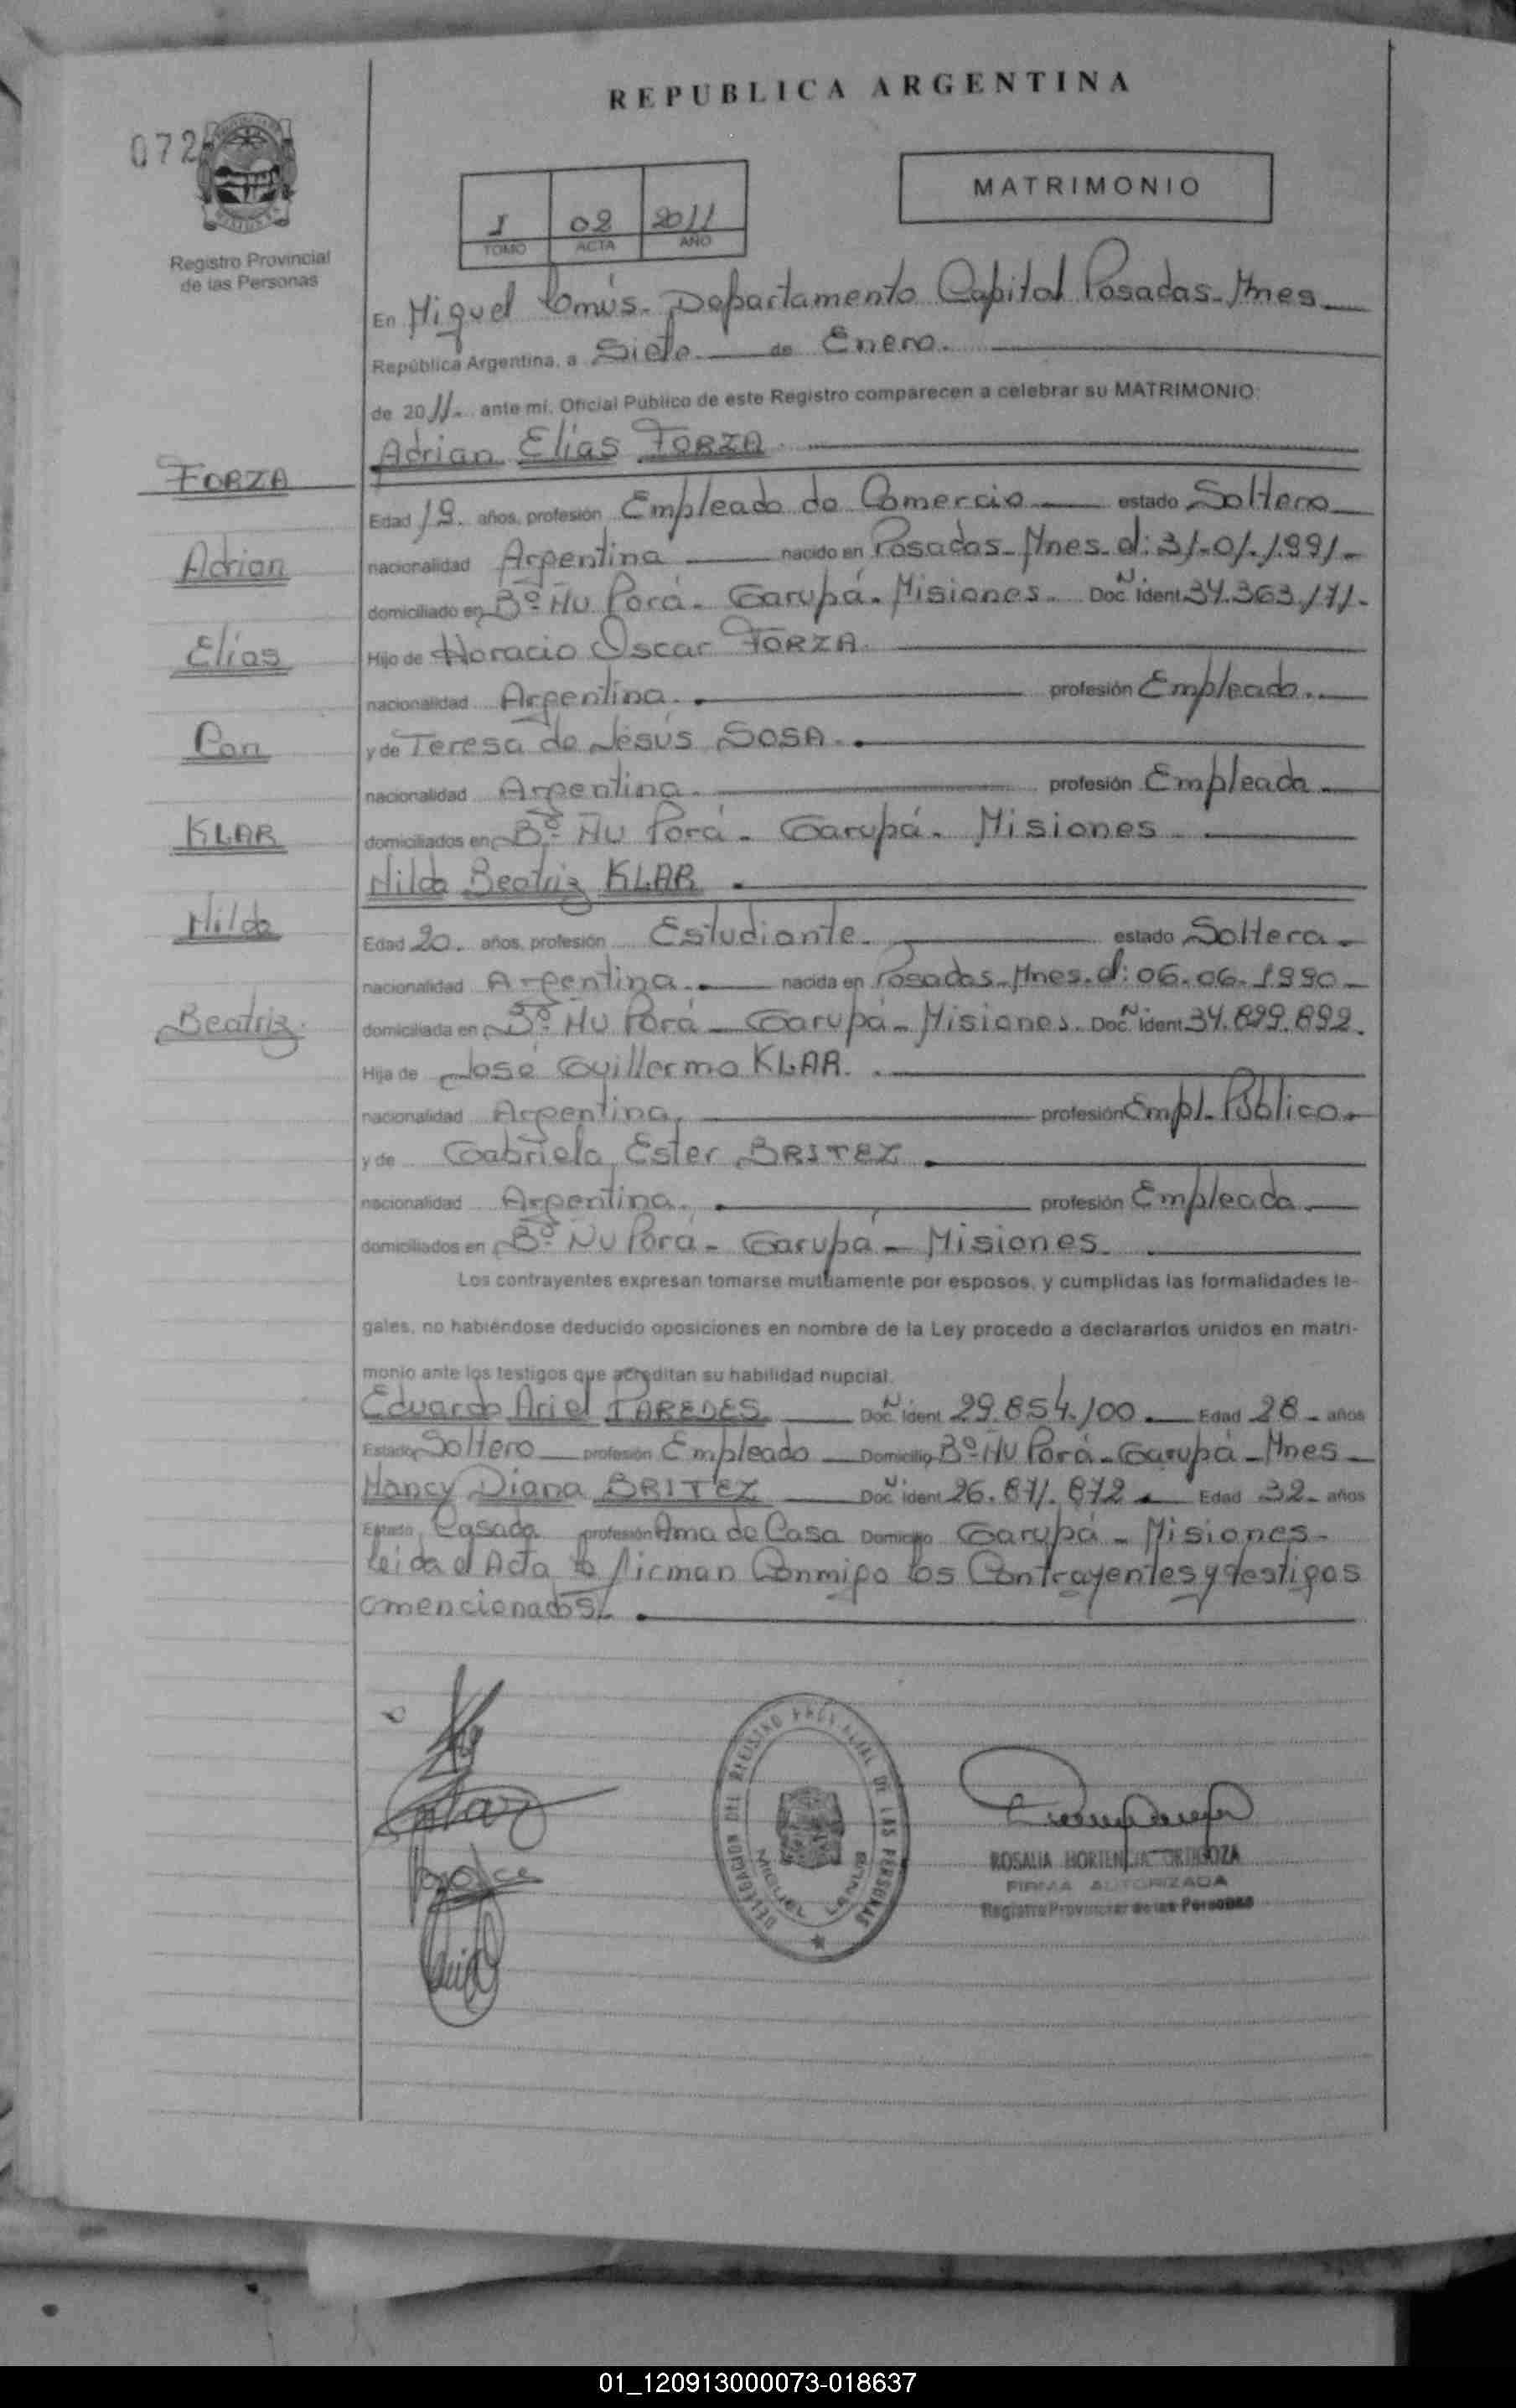 REPUBLICA ARGENTINA
072
MATRIMONIO
1 02 2011
TOMO ACTA AÑO
Registro Provincial
de las Personas
En Miguel Lanús - Departamento Capital Posadas - Mnes
República Argentina, a Siete de Enero.
de 2011. ante mí, Oficial Público de este Registro comparecen a celebrar su MATRIMONIO:
Adrian Elias FORZA
FORZA
Edad 19. años, profesión Empleado de Comercio estado Soltero
Adrian
nacionalidad Argentina nacido en Posadas - Mnes. el: 31-01-1991-
domiciliado en Bº Ñu Porá - Garupá - Misiones. Doc. N ident 34.363.171-
Elías
Hijo de Horacio Oscar FORZA
nacionalidad Argentina. profesión Empleado.
Con
y de Teresa de Jesús SOSA.
nacionalidad Argentina. profesión Empleada
KLAR
domiciliados en Bº Ñu Porá - Garupá - Misiones
Nilda Beatriz KLAR
Nilda
Edad 20. años, profesión Estudiante. estado Soltera.
nacionalidad Argentina. nacida en Posadas - Mnes. el: 06-06-1990
Beatriz
domiciliada en Bº Ñu Porá - Garupá - Misiones. Doc. N ident 34.899.892.
Hija de José Guillermo KLAR.
nacionalidad Argentina, profesión Empl. Público.
y de Gabriela Ester BRITEZ
nacionalidad Argentina. profesión Empleada
domiciliados en Bº Ñu Porá - Garupá - Misiones
Los contrayentes expresan tomarse mutuamente por esposos, y cumplidas las formalidades le-
gales, no habiéndose deducido oposiciones en nombre de la Ley procedo a declararlos unidos en matri-
monio ante los testigos que acreditan su habilidad nupcial.
Eduardo Ariel PAREDES Doc. N ident 29.854.100 Edad 28 años
Estado Soltero profesión Empleado Domicilio Bº Ñu Porá - Garupá - Mnes
Nancy Diana BRITEZ Doc. N ident 26.871.872 Edad 32 años
Estado Casada profesión Ama de Casa Domicilio Garupá - Misiones
Leida el Acta la firman Conmigo los Contrayentes y testigos
mencionados.
DELEGACION DEL REGISTRO PROVINCIAL DE LAS PERSONAS
MIGUEL LANUS
ROSALIA HORTENCIA ORTIGOZA
FIRMA AUTORIZADA
Registro Provincial de las Personas
01_120913000073-018637